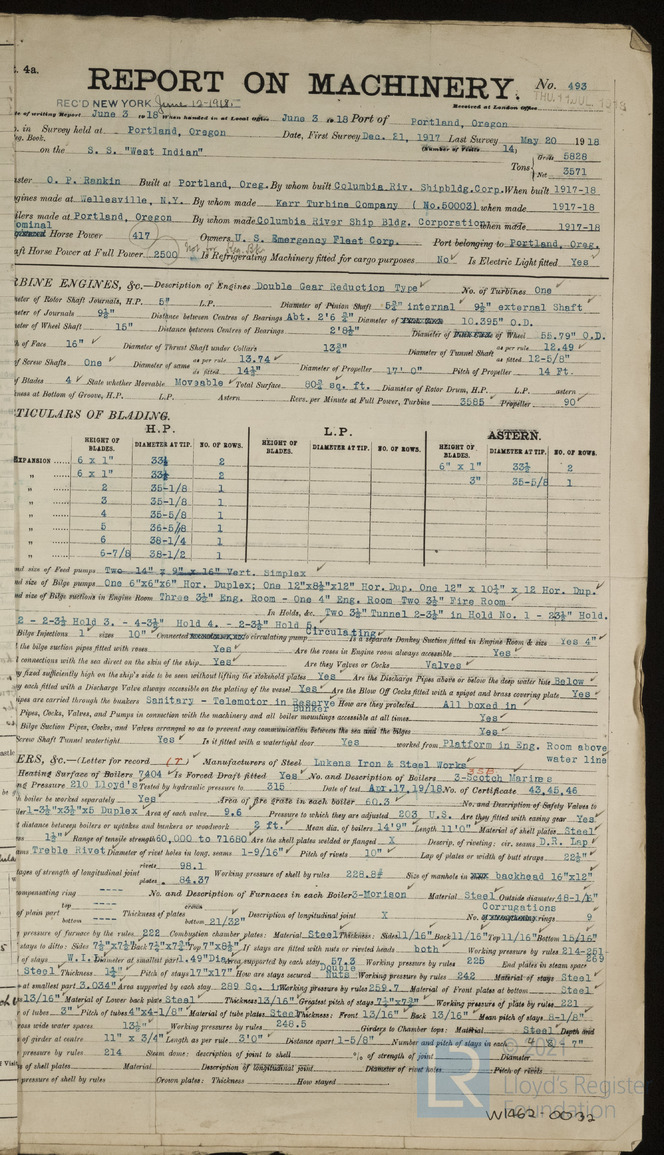 4a.
REPORT ON MACHINERY. No. 493
REC'D NEW YORK June 12-1918 Received at London Office THU. 11 JUL. 1918
of writing Report June 3 1918 When handed in at Local Office June 3 1918 Port of Portland, Oregon
in Survey held at Portland, Oregon Date, First Survey Dec. 21, 1917 Last Survey May 20 1918
Book. (Number of Visits 14)
on the S. S. "West Indian" Tons Gross 5828
Net 3571
O. P. Rankin Built at Portland, Oreg. By whom built Columbia Riv. Shipbldg. Corp. When built 1917-18
made at Wellesville, N.Y. By whom made Karr Turbine Company ( No.50003) when made 1917-18
made at Portland, Oregon By whom made Columbia River Ship Bldg. Corporation when made 1917-18
Horse Power 417 Owners U. S. Emergency Fleet Corp. Port belonging to Portland, Oreg.
Horse Power at Full Power 2500 Is Refrigerating Machinery fitted for cargo purposes No Is Electric Light fitted Yes
ENGINES, &c.—Description of Engines Double Gear Reduction Type No. of Turbines One
of Rotor Shaft Journals, H.P. 5" L.P. Diameter of Pinion Shaft 5¾" internal 9½" external Shaft
of Journals 9½" Distance between Centres of Bearings Abt. 2'6 ¾" Diameter of 10.395" O.D.
of Wheel Shaft 15" Distance between Centres of Bearings 2'8½" Diameter of Wheel 55.79" O.D.
of Face 16" Diameter of Thrust Shaft under Collars 13¾" Diameter of Tunnel Shaft as per rule 12.49
as fitted 12-5/8"
of Screw Shafts One Diameter of same as per rule 13.74 as fitted 14¼" Diameter of Propeller 17' 0" Pitch of Propeller 14 Ft.
of Blades 4 State whether Moveable Moveable Total Surface 80¾ sq. ft. Diameter of Rotor Drum, H.P. L.P. astern
at Bottom of Groove, H.P. L.P. Astern Revs. per Minute at Full Power, Turbine 3585 Propeller 90
PARTICULARS OF BLADING.
H.P. L.P. ASTERN.
HEIGHT OF BLADES. DIAMETER AT TIP. NO. OF ROWS. HEIGHT OF BLADES. DIAMETER AT TIP. NO. OF ROWS. HEIGHT OF BLADES. DIAMETER AT TIP. NO. OF ROWS.
EXPANSION 6 x 1" 33½ 2 6" x 1" 33½ 2
" 6 x 1" 33½ 2 3" 35-5/8 1
" 2 35-1/8 1
" 3 35-1/8 1
" 4 35-5/8 1
" 5 36-5/8 1
" 6 38-1/4 1
" 6-7/8 38-1/2 1
size of Feed pumps Two 14" x 9" x 16" Vert. Simplex
size of Bilge pumps One 6"x6"x6" Hor. Duplex; One 12"x8½"x12" Hor. Dup. One 12" x 10¼" x 12 Hor. Dup.
size of Bilge suctions in Engine Room Three 3½" Eng. Room - One 4" Eng. Room Two 3½" Fire Room
In Holds, &c. Two 3½" Tunnel 2-3½" in Hold No. 1 - 23½" Hold.
2 - 2-3½ Hold 3. - 4-3½ Hold 4. - 2-3½" Hold 5.
Bilge Injections 1 sizes 10" Connected to circulating pump Circulating Is a separate Donkey Suction fitted in Engine Room & size Yes 4"
the bilge suction pipes fitted with roses Yes Are the roses in Engine room always accessible Yes
connections with the sea direct on the skin of the ship Yes Are they Valves or Cocks Valves
fixed sufficiently high on the ship's side to be seen without lifting the stokehold plates Yes Are the Discharge Pipes above or below the deep water line Below
each fitted with a Discharge Valve always accessible on the plating of the vessel Yes Are the Blow Off Cocks fitted with a spigot and brass covering plate Yes
pipes are carried through the bunkers Sanitary - Telemotor in Reserve Bunker How are they protected All boxed in
Pipes, Cocks, Valves, and Pumps in connection with the machinery and all boiler mountings accessible at all times Yes
Bilge Suction Pipes, Cocks, and Valves arranged so as to prevent any communication between the sea and the bilges Yes
Screw Shaft Tunnel watertight Yes Is it fitted with a watertight door Yes worked from Platform in Eng. Room above
water line
BOILERS, &c.—(Letter for record (r) Manufacturers of Steel Lukens Iron & Steel Works
Heating Surface of Boilers 7404 Is Forced Draft fitted Yes No. and Description of Boilers 3-Scotch Marines 3SB
Pressure 210 Lloyd's Tested by hydraulic pressure to 315 Date of test Apr.17,19/18. No. of Certificate 43,45,46
boiler be worked separately Yes Area of fire grate in each boiler 60.3 No. and Description of Safety Valves to
1-3½"x3½"x5 Duplex Area of each valve 9.6 Pressure to which they are adjusted 203 U.S. Are they fitted with easing gear Yes
distance between boilers or uptakes and bunkers or woodwork 2 ft. Mean dia. of boilers 14'9" Length 11'0" Material of shell plates Steel
1½" Range of tensile strength 60,000 to 71680 Are the shell plates welded or flanged X Descrip. of riveting: cir. seams D.R. Lap
Treble Rivet Diameter of rivet holes in long. seams 1-9/16" Pitch of rivets 10" Lap of plates or width of butt straps 22½"
of strength of longitudinal joint rivets 98.1 plates 84.37 Working pressure of shell by rules 228.8# Size of manhole in backhead 16"x12"
compensating ring ---- No. and Description of Furnaces in each Boiler 3-Morison Material Steel Outside diameter 48-1/8"
of plain part top ---- bottom ---- Thickness of plates crown bottom 21/32" Description of longitudinal joint X No. of rings Corrugations 9
pressure of furnace by the rules 222 Combustion chamber plates: Material Steel Thickness: Sides 11/16" Back 11/16" Top 11/16" Bottom 15/16"
stays to ditto: Sides 7½"x7½" Back 7½"x7¾" Top 7"x8½" If stays are fitted with nuts or riveted heads both Working pressure by rules 214-251-269
of stays W.I. Diameter at smallest part 1.49" Area supported by each stay 57.3 Working pressure by rules 225 End plates in steam space
Steel Thickness 1¼" Pitch of stays 17"x17" How are stays secured Double Nuts Working pressure by rules 242 Material of stays Steel
at smallest part 3.034" Area supported by each stay 289 Sq. in. Working pressure by rules 259.7 Material of Front plates at bottom Steel
13/16" Material of Lower back plate Steel Thickness 13/16" Greatest pitch of stays 7½"x7¾" Working pressure of plate by rules 221
of tubes 3" Pitch of tubes 4"x4-1/8" Material of tube plates Steel Thickness: Front 13/16" Back 13/16" Mean pitch of stays 8-1/8"
across wide water spaces 13½" Working pressures by rules 248.5 Girders to Chamber tops: Material Steel Depth and
of girder at centre 11" x 3/4" Length as per rule 3'0" Distance apart 1-5/8" Number and pitch of stays in each 7"
pressure by rules 214 Steam dome: description of joint to shell % of strength of joint Diameter
of shell plates Material Description of longitudinal joint Diameter of rivet holes Pitch of rivets
pressure of shell by rules Crown plates: Thickness How stayed
© 2021
LR
Lloyd's Register
Foundation
W1462-0032